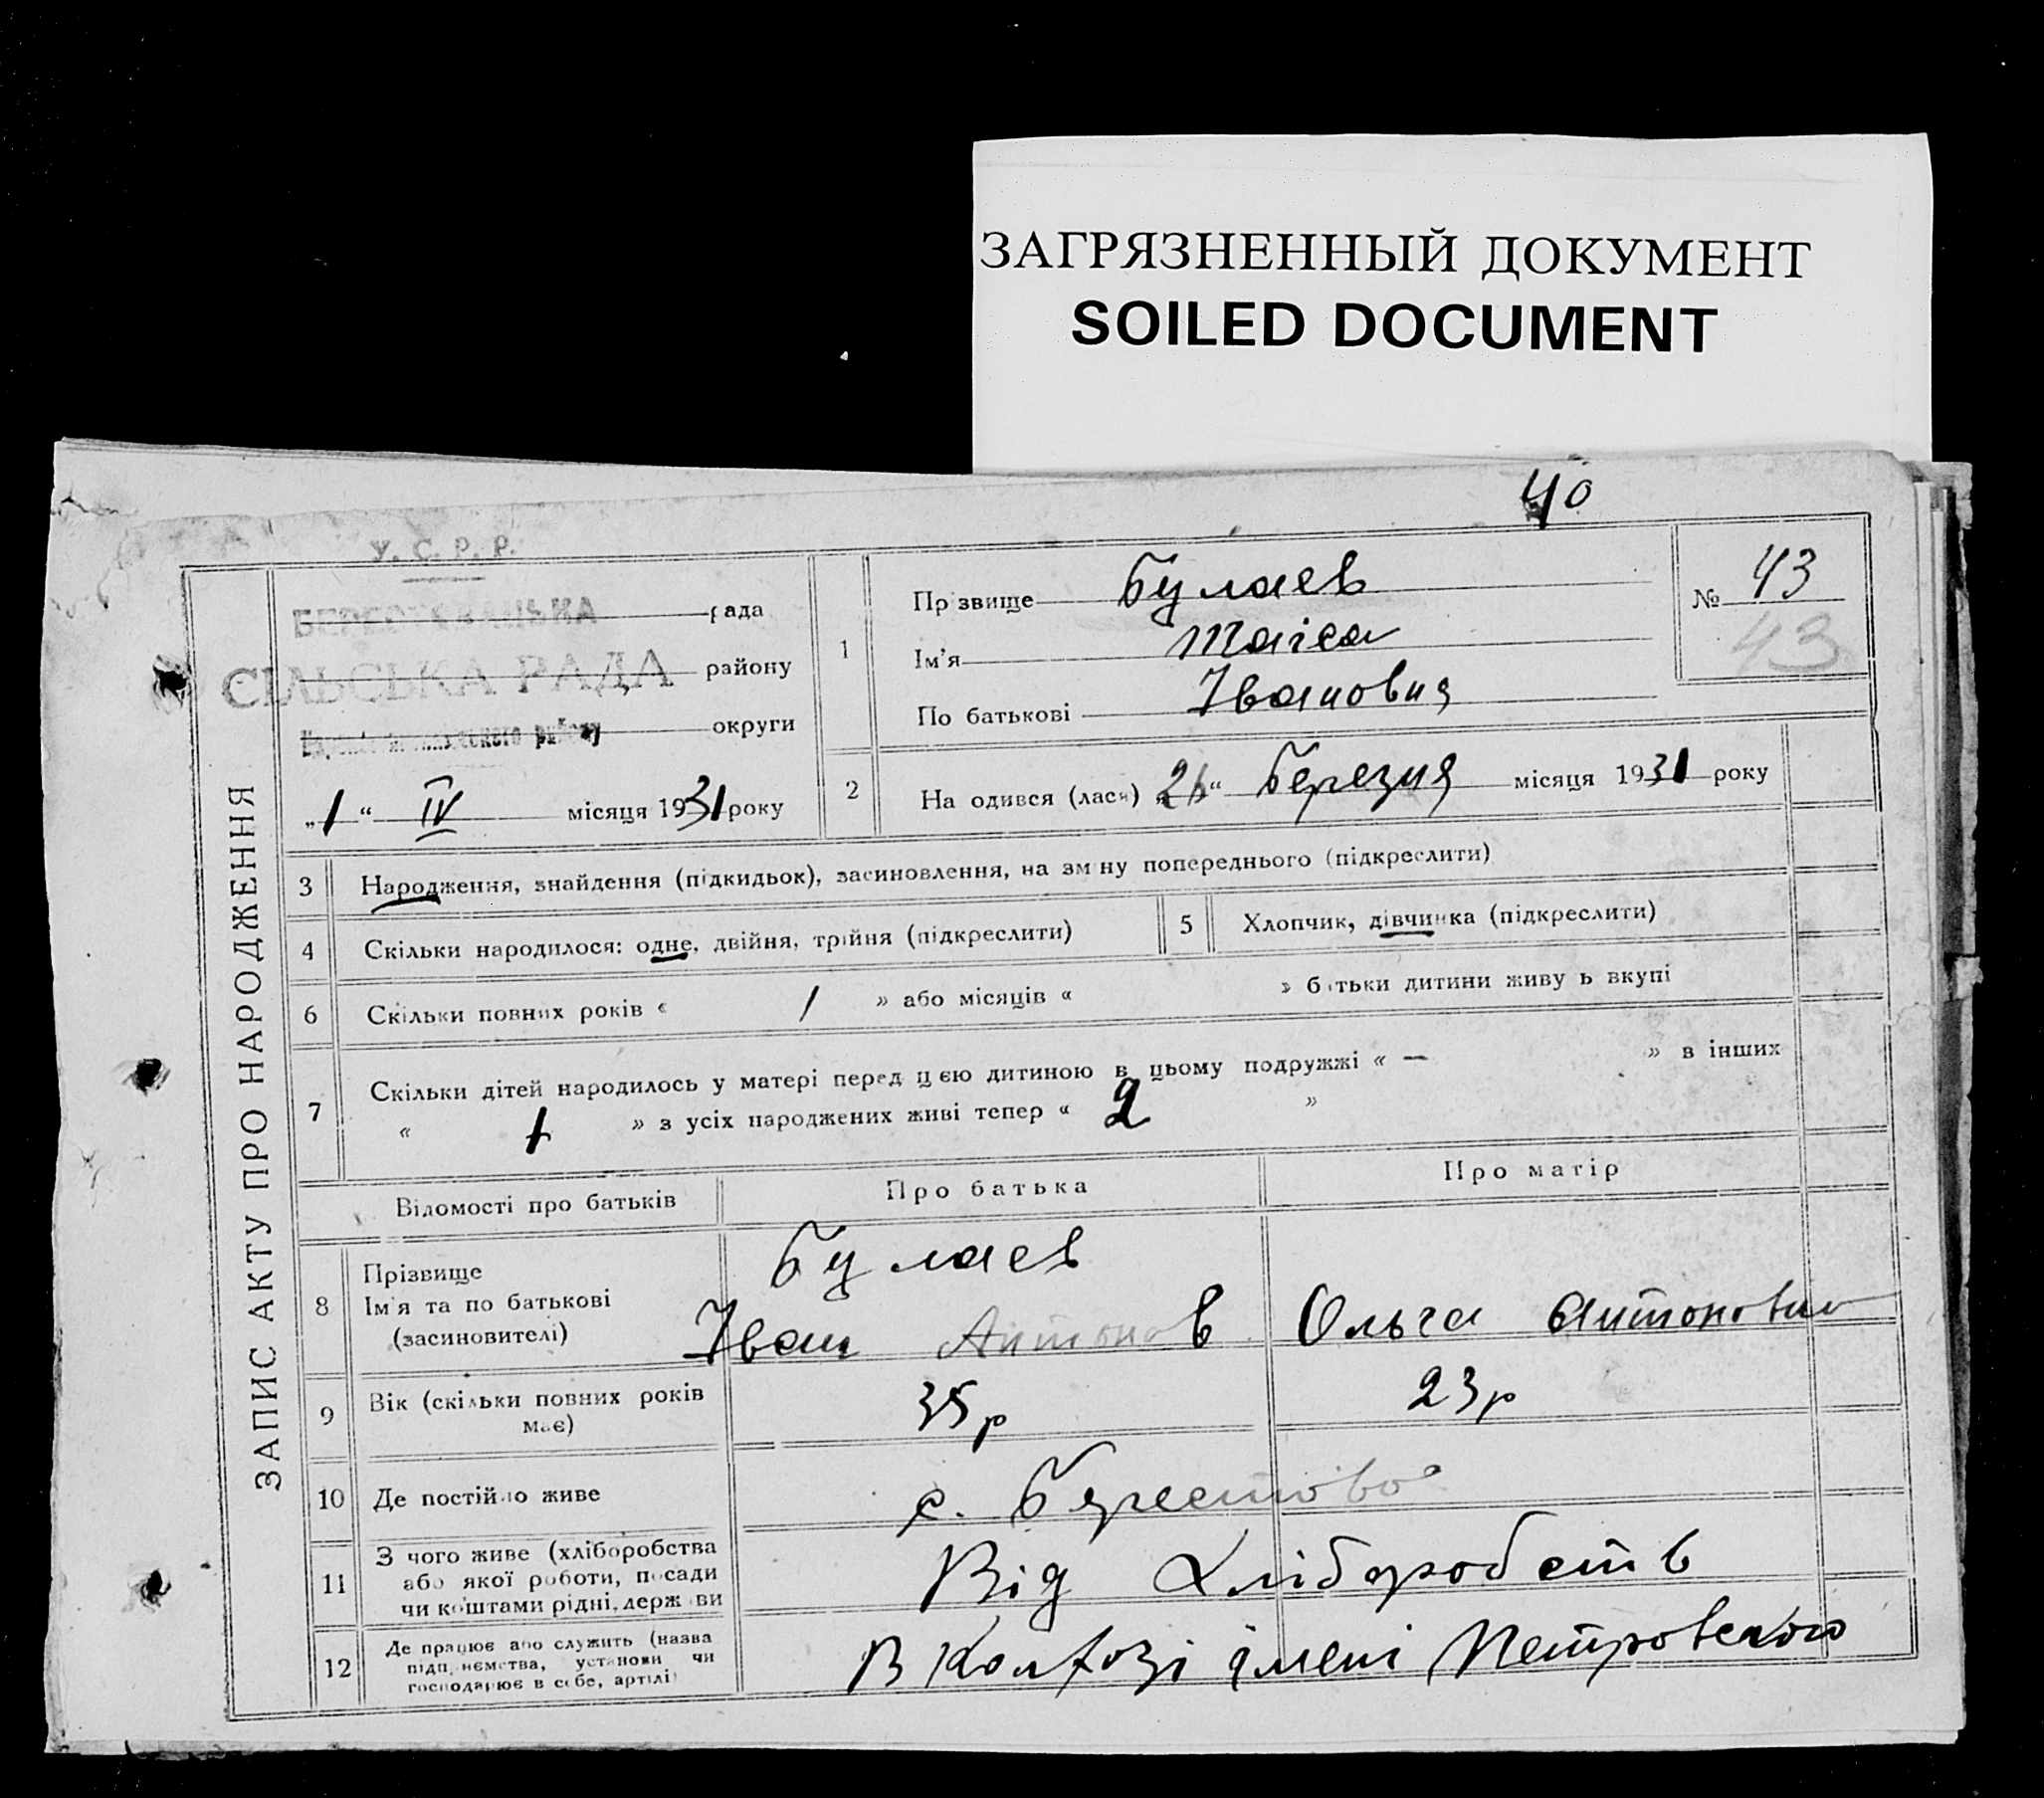 ЗАГРЯЗНЕННЫЙ ДОКУМЕНТ
SOILED DOCUMENT
40
У. С. Р. Р.
ЗАПИС АКТУ ПРО НАРОДЖЕННЯ
рада
СІЛЬСЬКА РАДА району
району округи
„1“ IV місяця 1931 року
1
Прізвище Булаев
Ім'я Таіса
По батькові Івановня
№ 43
43
2 На одився (лася) „26“ Березня місяця 1931 року
3 Народження, знайдення (підкидьок), засиновлення, на зміну попереднього (підкреслити)
4 Скільки народилося: одне, двійня, трійня (підкреслити)
5 Хлопчик, дівчинка (підкреслити)
6 Скільки повних років « 1 » або місяців « » батьки дитини живуть вкупі
7 Скільки дітей народилось у матері перед цією дитиною в цьому подружжі « — » в інших
« 1 » з усіх народжених живі тепер « 2 »
Відомості про батьків Про батька Про матір
8 Прізвище
Ім'я та по батькові
(засиновителі)
Булаев
Іван Антонов Ольга Антоновна
9 Вік (скільки повних років має) 35р 23р
10 Де постійно живе с. Берестово
11 З чого живе (хліборобства
або якої роботи, посади
чи коштами рідні, держави
Від Хліборобств
12 Де працює або служить (назва
підприємства, установи чи
господарює в себе, артілі)
В Колхозі імені Петровского